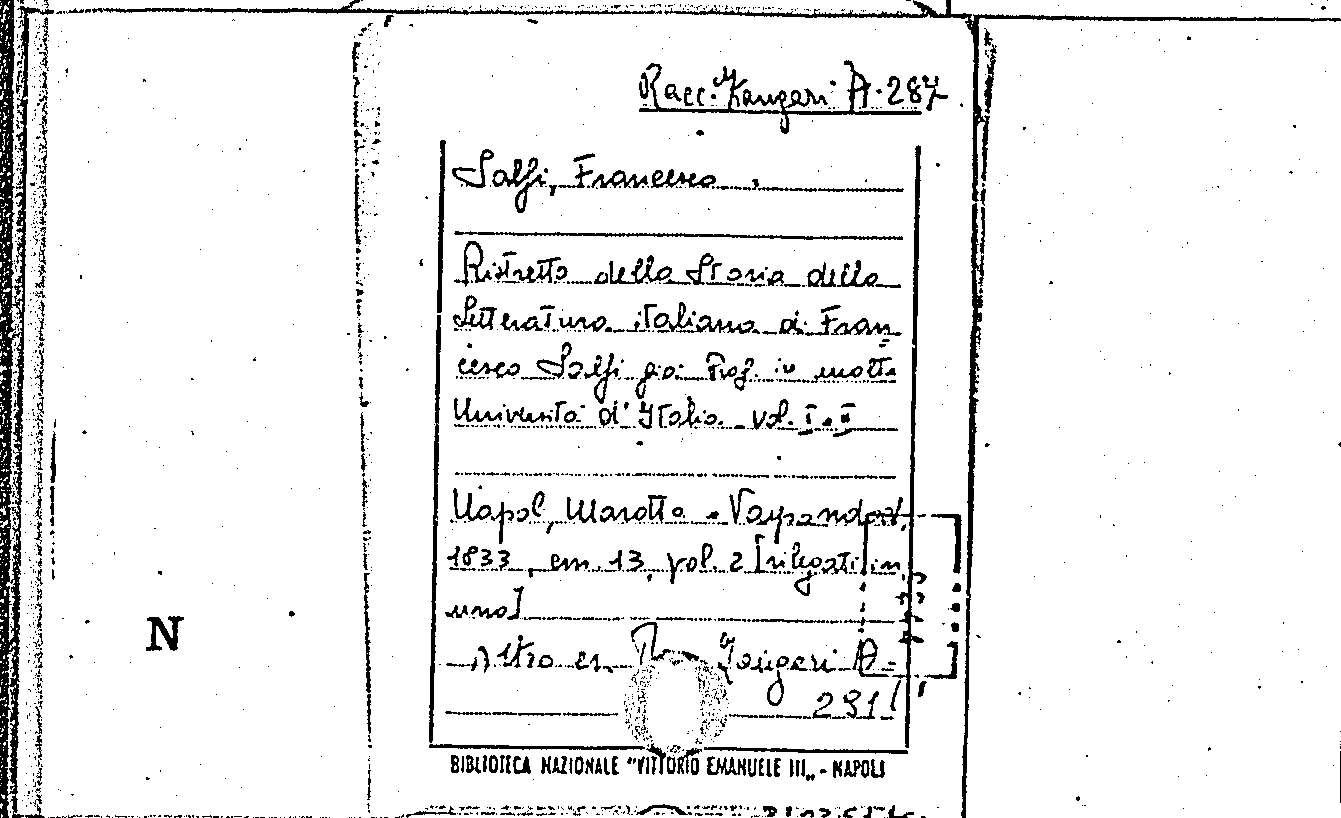 Racc. Zangari A. 287
Salfi, Francesco.
Ristretto della Storia della
Letteratura italiana di Fran=
cesco Salfi già Prof. in molte
Università d'Italia. vol. I.II
Napol, Marotta e Vaspandoch,
1833, cm. 13, vol. 2 [rilegati in
uno]
Altro es. Zangari A-
291
N
BIBLIOTECA NAZIONALE "VITTORIO EMANUELE III„ - NAPOLI